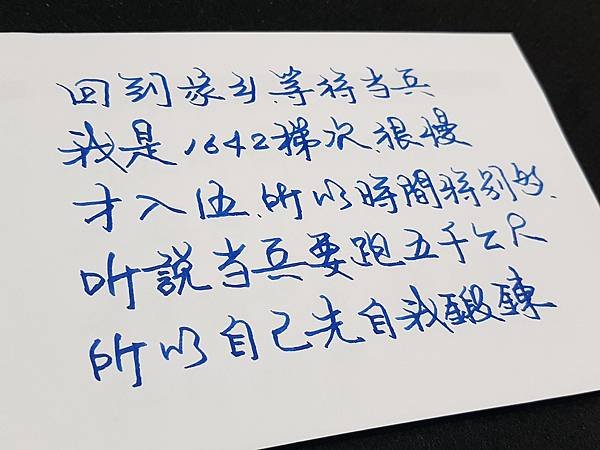 回到家中等待当兵
我是1642梯次很慢
才入伍.所以時間特別
听說当兵要跑五千公尺
所以自己先自我鍛鍊